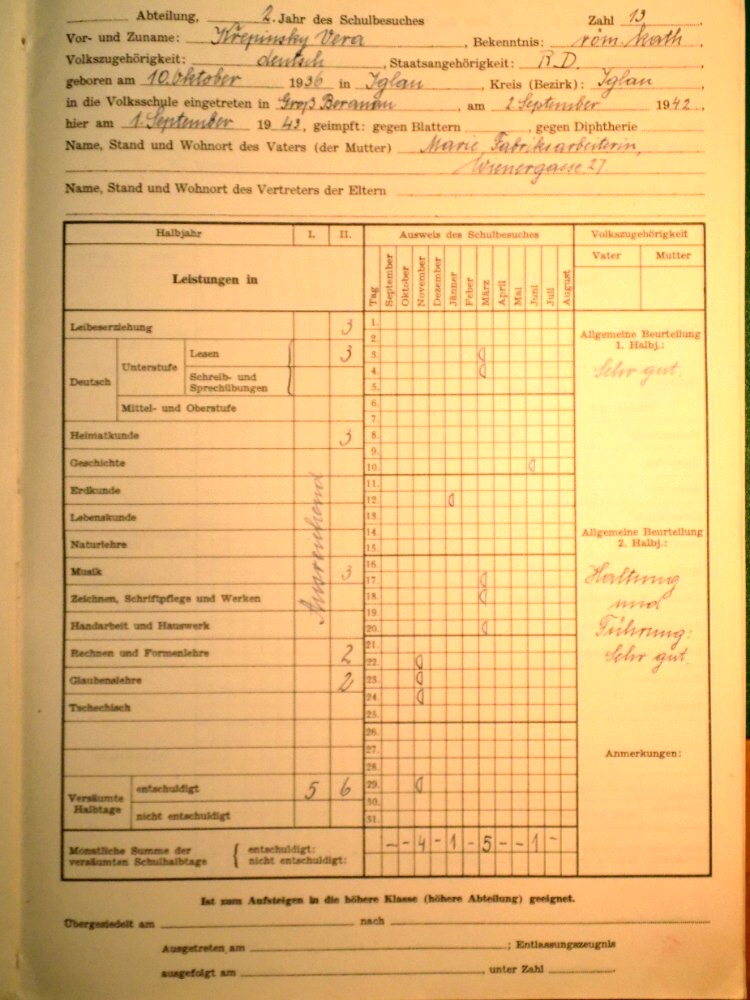 Abteilung, 2. Jahr des Schulbesuches Zahl 13
Vor- und Zuname: Křepinsky Vera, Bekenntnis: röm. kath.
Volkszugehörigkeit: deutsch, Staatsangehörigkeit: R.D.
geboren am 10. Oktober 1936 in Iglau, Kreis (Bezirk): Iglau
in die Volksschule eingetreten in Groß Beranau, am 2. September 1942,
hier am 1. September 1943, geimpft: gegen Blattern, gegen Diphtherie
Name, Stand und Wohnort des Vaters (der Mutter) Marie, Fabriksarbeiterin,
Wienergasse 27.
Name, Stand und Wohnort des Vertreters der Eltern
Halbjahr I. II. Ausweis des Schulbesuches Volkszugehörigkeit
Vater Mutter
Leistungen in
Tag September Oktober November Dezember Jänner Feber März April Mai Juni Juli August
Leibeserziehung 3
Deutsch Unterstufe Lesen 3
Schreib- und Sprechübungen
Mittel- und Oberstufe
Heimatkunde 3
Geschichte
Erdkunde
Lebenskunde
Naturlehre
Musik 3
Zeichnen, Schriftpflege und Werken
Handarbeit und Hauswerk
Rechnen und Formenlehre 2
Glaubenslehre 2
Tschechisch
Ausreichend
Versäumte Halbtage entschuldigt 5 6
nicht entschuldigt
1.
2.
3.
4.
5.
6.
7.
8.
9.
10.
11.
12.
13.
14.
15.
16.
17.
18.
19.
20.
21.
22.
23.
24.
25.
26.
27.
28.
29.
30.
31.
Allgemeine Beurteilung
1. Halbj.:
Sehr gut.
Allgemeine Beurteilung
2. Halbj.:
Haltung
und
Führung:
Sehr gut.
Anmerkungen:
Monatliche Summe der versäumten Schulhalbtage { entschuldigt: - - 4 - 1 - 5 - - 1 -
nicht entschuldigt:
Ist zum Aufsteigen in die höhere Klasse (höhere Abteilung) geeignet.
Übergesiedelt am nach
Ausgetreten am ; Entlassungszeugnis
ausgefolgt am , unter Zahl